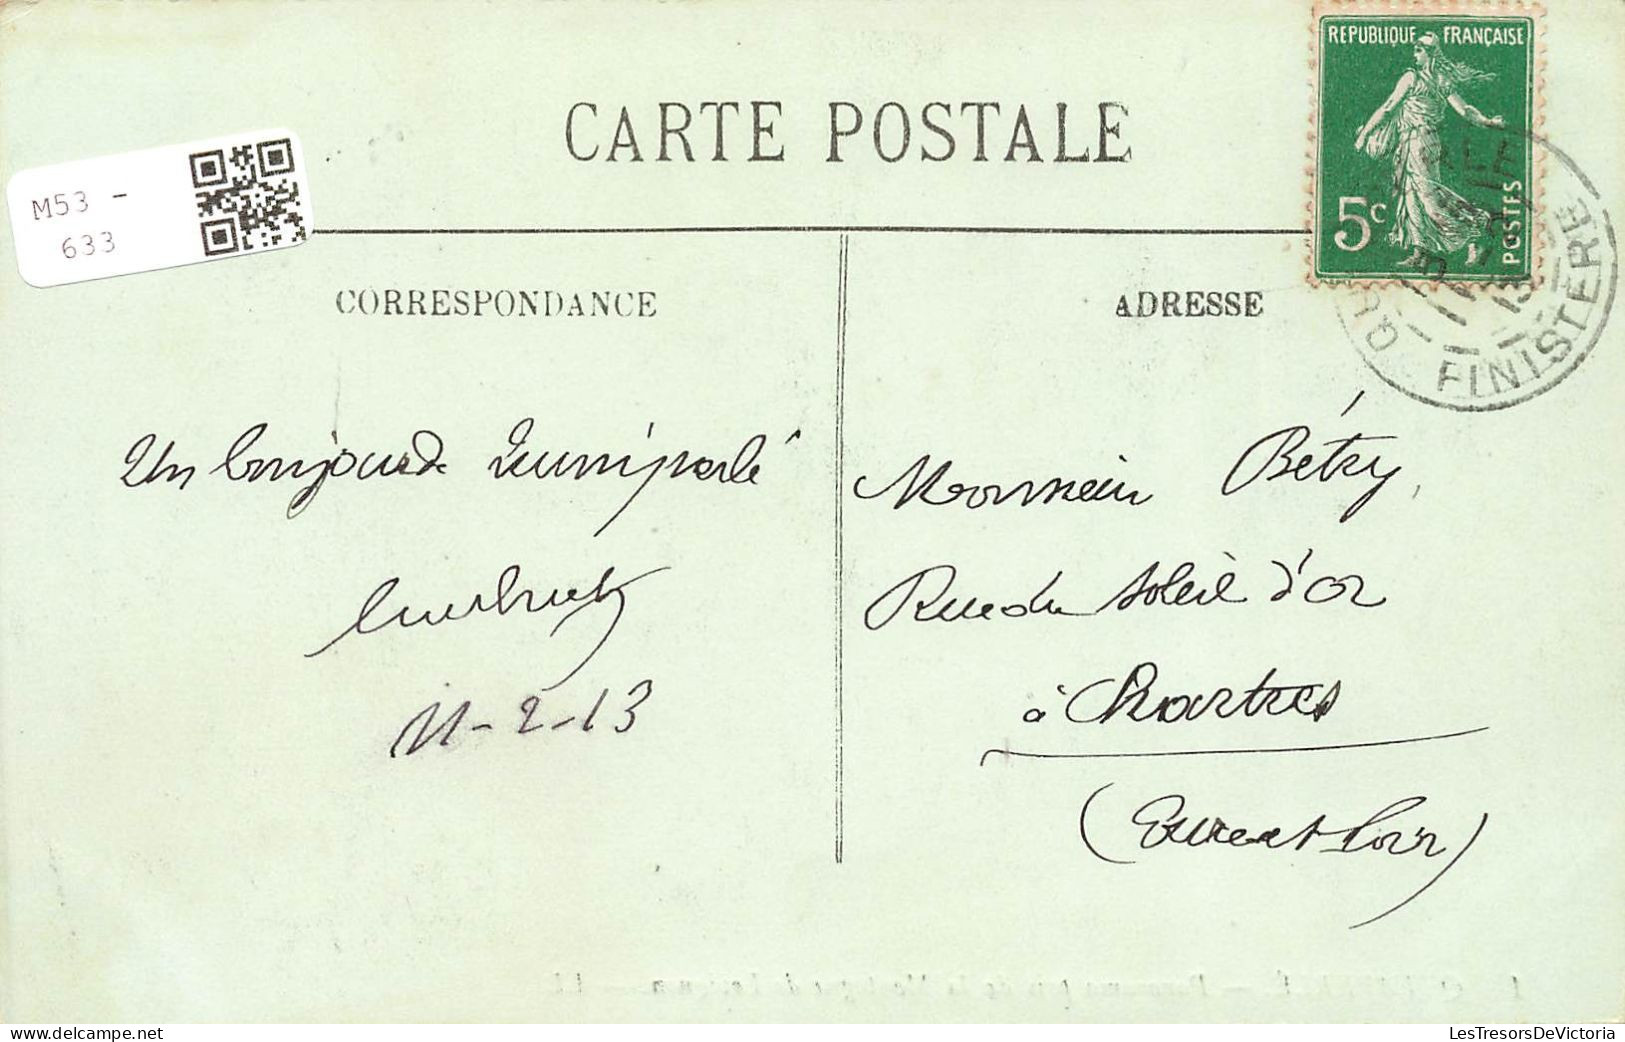 CARTE POSTALE
REPUBLIQUE FRANÇAISE
5c
POSTES
M53 -
633
FINISTERE
CORRESPONDANCE
ADRESSE
Un bonjour de Quimperlé
11-2-13
Monsieur Bétry,
Rue du Soleil d'or
à Chartres
(Eure et Loir)
LesTresorsDeVictoria
www.delcampe.net